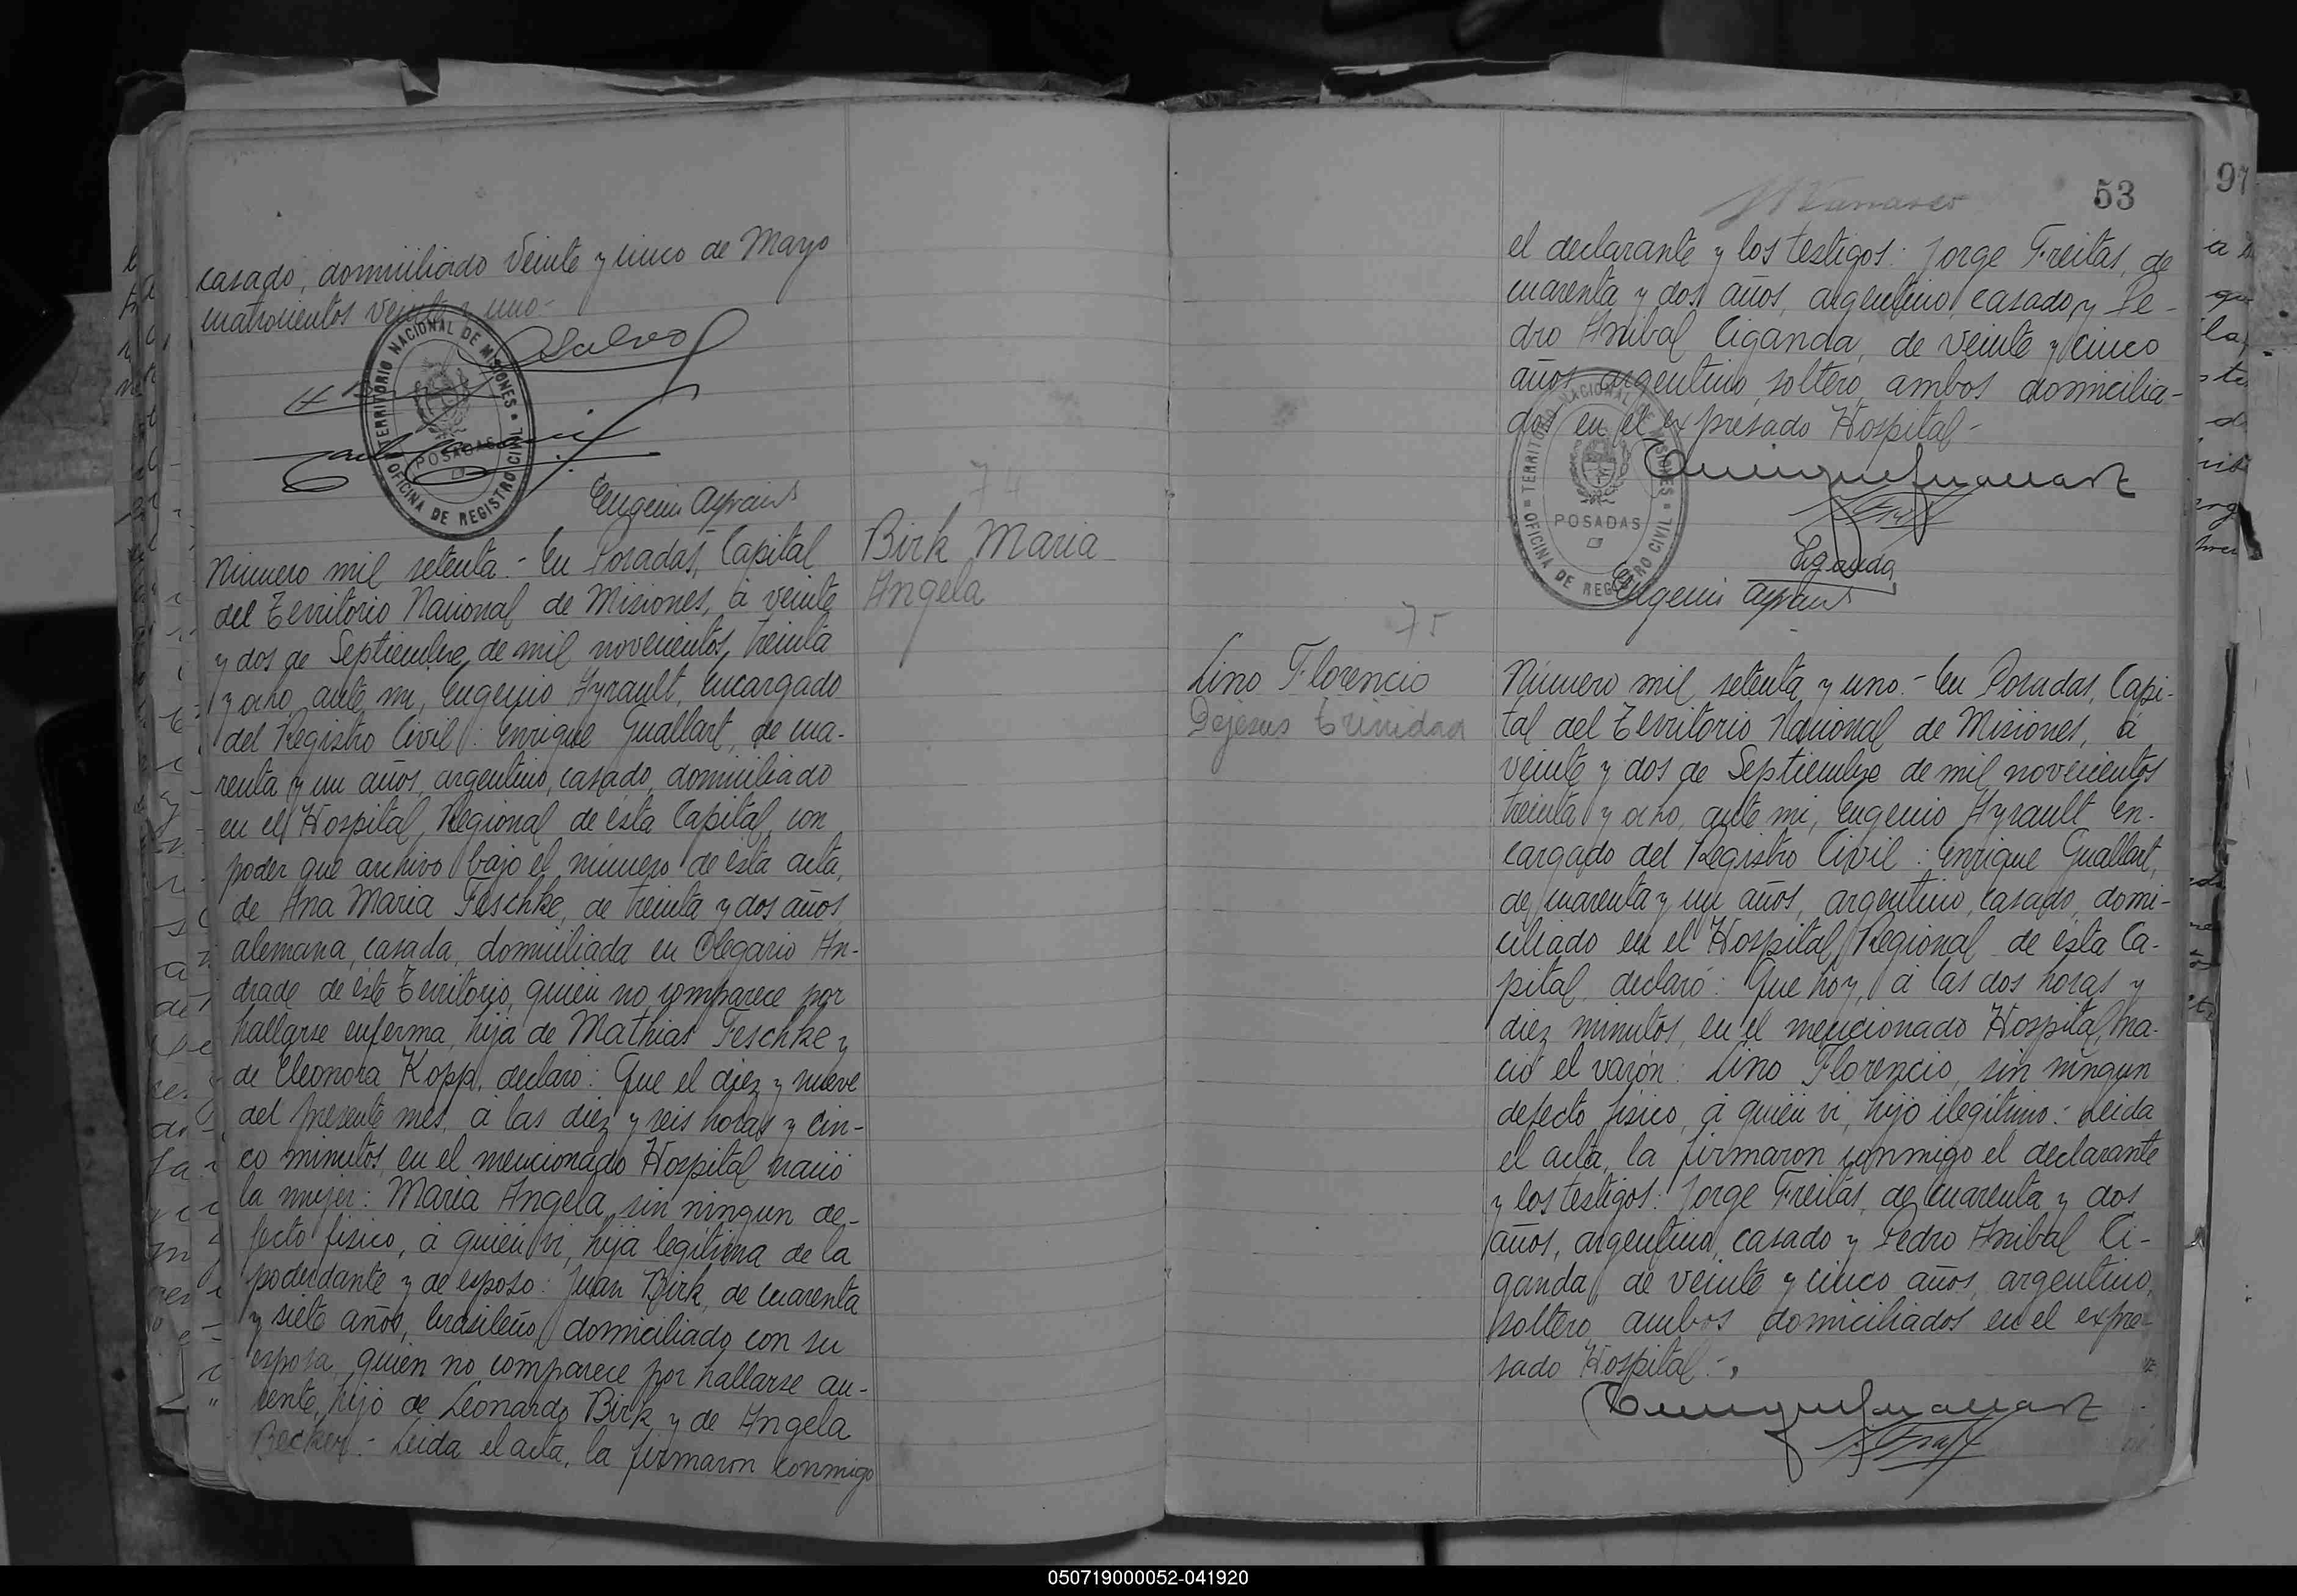 casado, domiciliado Veinte y cinco de Mayo
cuatrocientos veinte y uno-
TERRITORIO NACIONAL DE MISIONES
POSADAS
OFICINA DE REGISTRO CIVIL
Eugenio Ayrault
74
Birk Maria
Angela
Número mil setenta.- En Posadas, Capital
del Territorio Nacional de Misiones, á veinte
y dos de Septiembre de mil novecientos treinta
y ocho, ante mi, Eugenio Ayrault, Encargado
del Registro Civil: Enrique Guallart, de cua-
renta y un años, argentino, casado, domiciliado
en el Hospital Regional de ésta Capital, con
poder que archivo bajo el número de ésta acta,
de Ana Maria Feschke, de treinta y dos años
alemana, casada, domiciliada en Olegario An-
drade de éste Territorio, quién no comparece por
hallarse enferma, hija de Mathias Feschke y
de Eleonora Kopp, declaró: Que el diez y nueve
del presente mes, á las diez y seis horas y cin-
co minutos, en el mencionado Hospital nació
la mujer: Maria Angela, sin ningun de-
fecto fisico, á quién vi, hija legitima de la
poderdante y de esposo: Juan Birk, de cuarenta
y siete años, brasileño, domiciliado con su
esposa, quién no comparece por hallarse au-
sente, hijo de Leonardo Birk y de Angela
Becker.- Leida el acta, la firmaron conmigo
53
97
el declarante y los testigos: Jorge Freitas, de
cuarenta y dos años, argentino, casado y Pe-
dro Anibal Ciganda, de veinte y cinco
años, argentino, soltero, ambos domicilia-
dos en el expresado Hospital-
TERRITORIO NACIONAL DE MISIONES
POSADAS
OFICINA DE REGISTRO CIVIL
Enrique Guallart
Ciganda
Eugenio Ayrault
75
Lino Florencio
Dejesus Trinidad
Número mil setenta y uno.- En Posadas, Capi-
tal del Territorio Nacional de Misiones, á
veinte y dos de Septiembre de mil novecientos
treinta y ocho, ante mi, Eugenio Ayrault En-
cargado del Registro Civil: Enrique Guallart,
de cuarenta y un años, argentino, casado, domi-
ciliado en el Hospital Regional de ésta Ca-
pital, declaró: Que hoy, á las dos horas y
diez minutos, en el mencionado Hospital, na-
ció el varón: Lino Florencio, sin ningun
defecto fisico, á quién vi, hijo ilegitimo.- Leida
el acta, la firmaron conmigo el declarante
y los testigos: Jorge Freitas, de cuarenta y dos
años, argentino, casado y Pedro Anibal Ci-
ganda, de veinte y cinco años, argentino,
soltero, ambos domiciliados en el expre-
sado Hospital-
Enrique Guallart
050719000052-041920